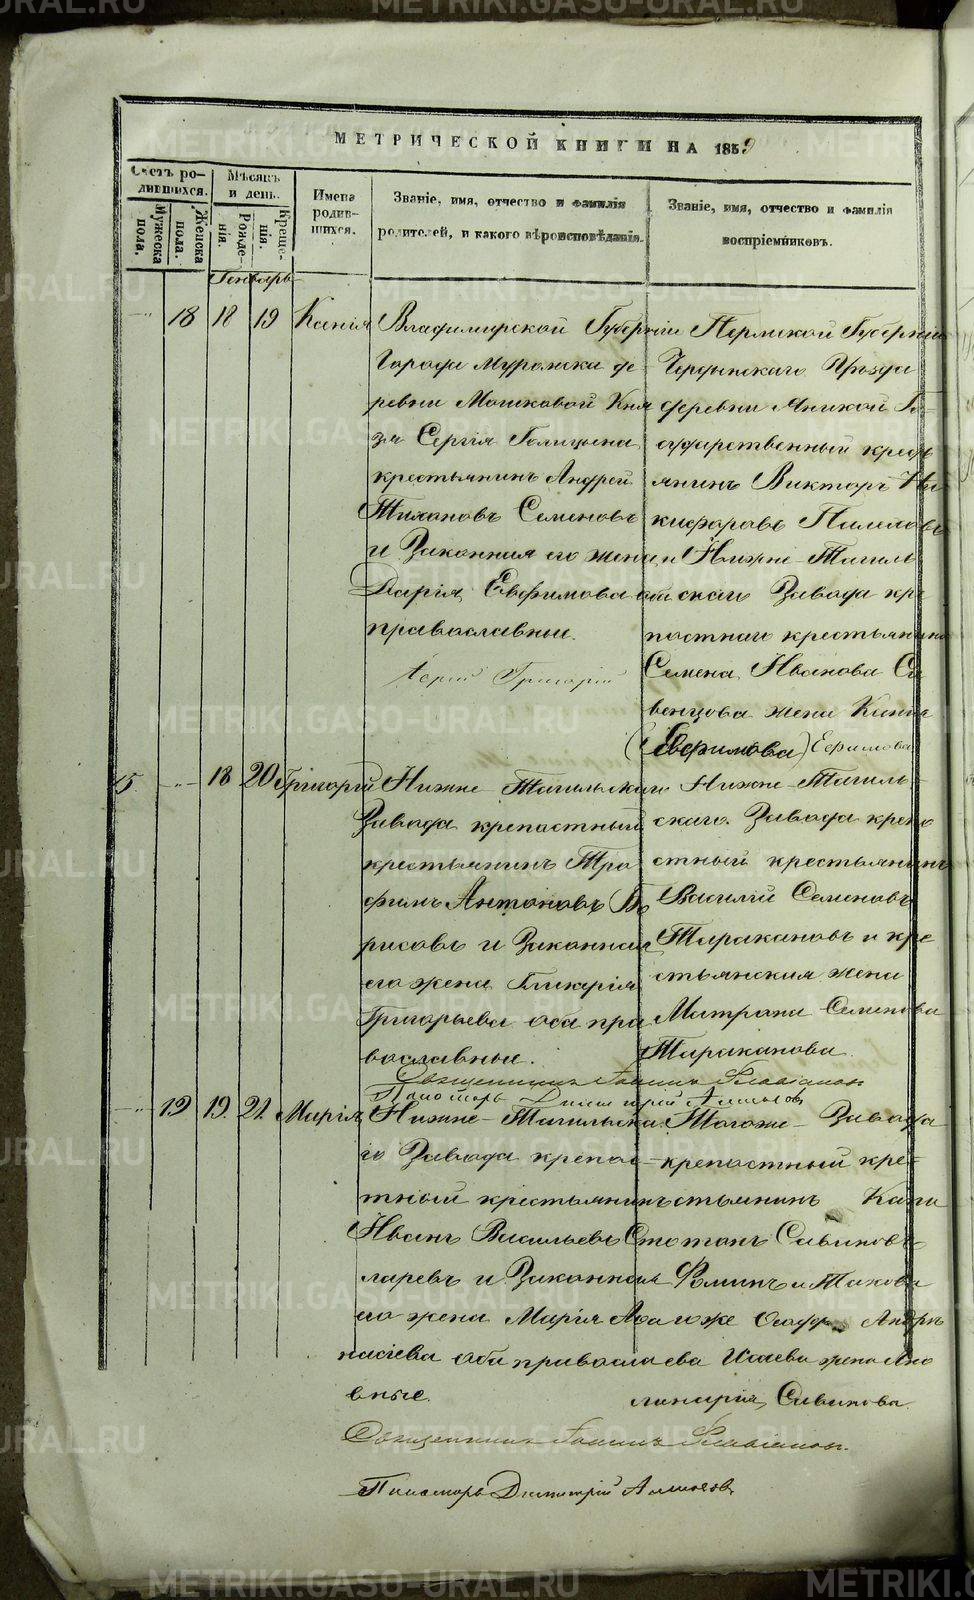 МЕТРИЧЕСКОЙ КНИГИ НА 1859
Счетъ родившихся.
Мужеска пола.
Женска пола.
Мѣсяцъ и день.
Рожденія.
Крещенія.
Имена родившихся.
Званіе, имя, отчество и фамилія
родителей, и какого вѣроисповѣданія.
Званіе, имя, отчество и фамилія
воспріемниковъ.
Генварь
18 18 19 Ксенія
Владимирской Губерніи
Города Мурома де
ревни Мошковой Кня
зя Сергія Голицына
крестьянинъ Андрей
Тихановъ Семеновъ
и Законная его жена
Дарія Евфимова оба
православные.
Іерей Григорій
Пермской Губерніи
Чердынскаго Уѣзда
деревни Аникой Го-
сударственный кресть
янинъ Викторъ Ни
кифоровъ Пилиповъ
и Нижне-Тагиль
скаго Завода кре
постнаго крестьянина
Семена Иванова Са
венцова жена
(Евфимова) Ефимова
15 18 20 Григорій
Нижне-Тагильскаго
Завода крепостный
крестьянинъ Тро
фимъ Антоновъ (Бо
рисовъ и Законная
его жена Гликерія
Григорьева оба пра
вославные.
Нижне-Тагиль-
скаго. Завода крепо
стный крестьянинъ
Василій Семеновъ
Таракановъ и кре
стьянская жена
Матрона Семенова
Тараканова
Священникъ Іоаннъ Флавіанов
Пономарь Димитрій
19 19 21 Марія
Нижне-Тагильска
го Завода крепос-
тный крестьянинъ
Иванъ Васильевъ Сто
ларевъ и Законная
его жена Марія Афа
насіева оба правосла
вные.
Тогоже-Завода
крепостный кре-
стьянинъ Капи
тонъ Савиновъ
Фоминъ и Такова
го же
ева Исаева жена Апо
линарія Савинова.
Священникъ Іоаннъ Флавіанов.
Пономарь Димитрій
METRIKI.GASO-URAL.RU